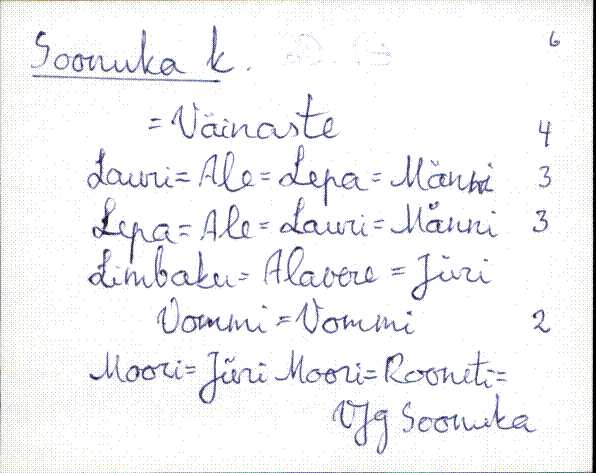 Soonuka k. 6
= Väinaste 4
Lauri = Ale = Lepa = Männi 3
Lepa = Ale = Lauri = Männi 3
Limbaku = Alavere = Jüri
Vommi = Vommi 2
Moori = Jüri Moori = Rooneti =
Vjg Soonuka